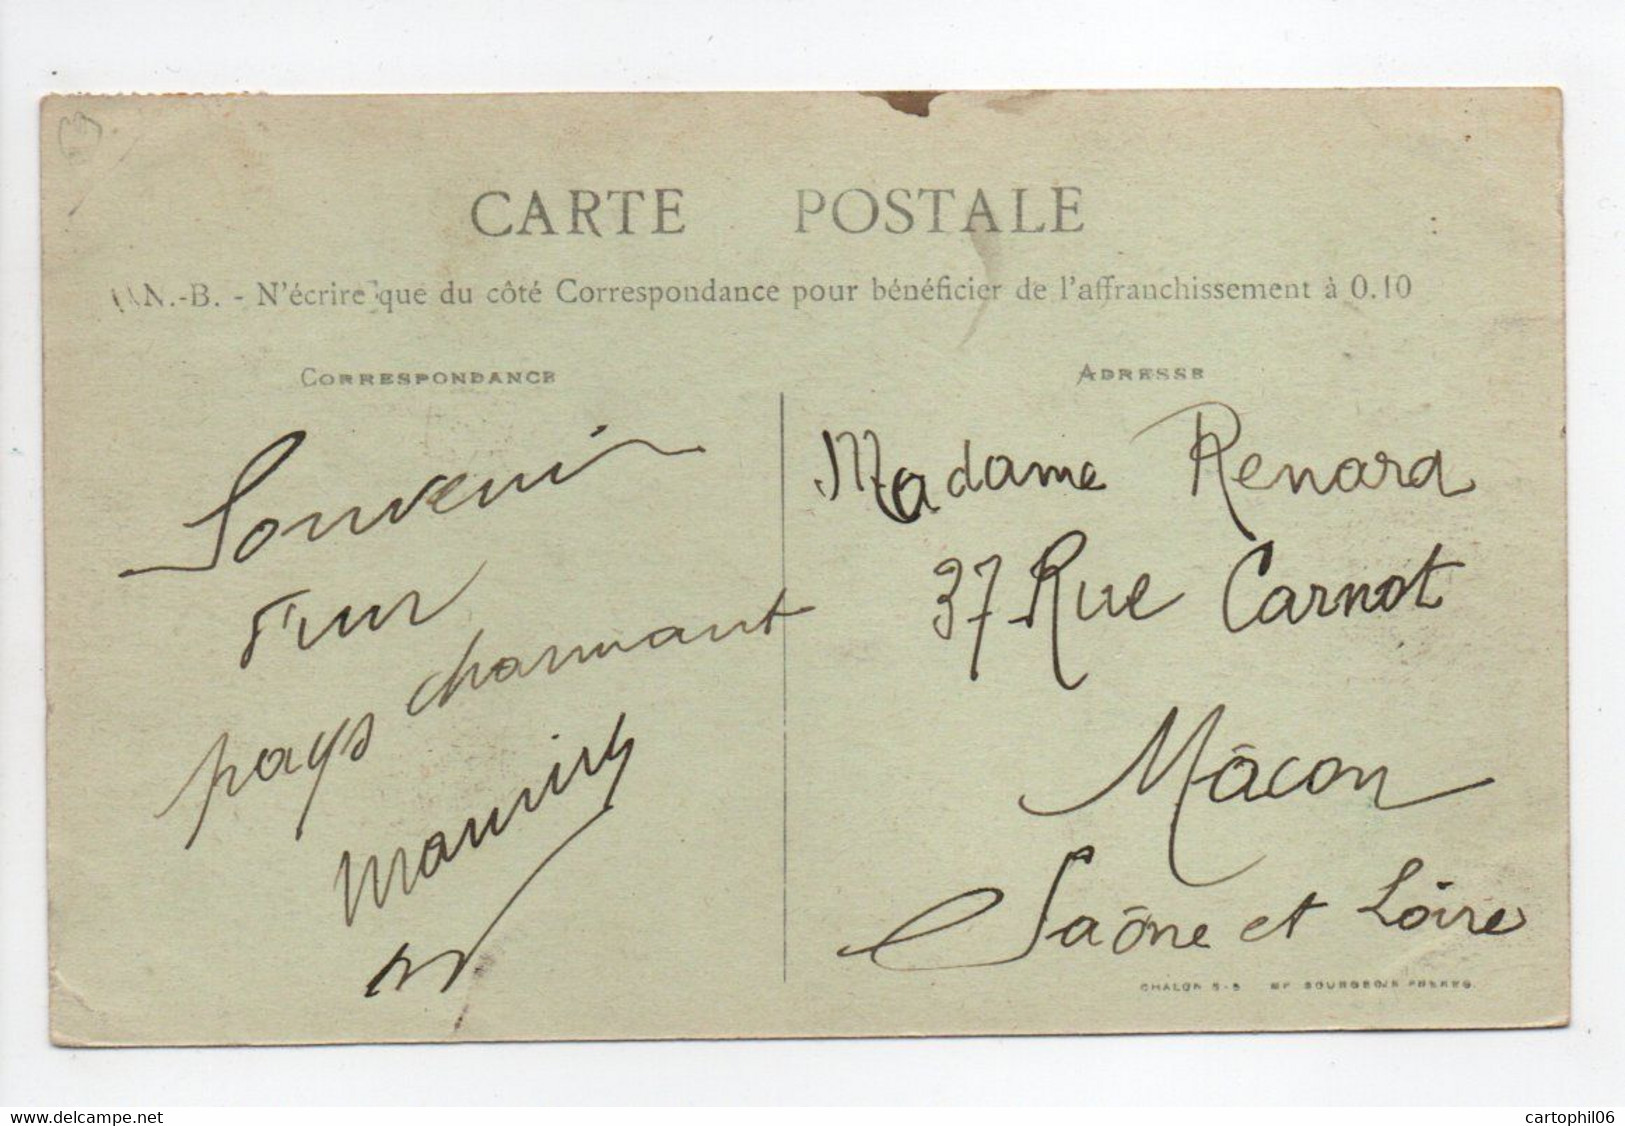 CARTE POSTALE
N.-B. - N'écrire que du côté Correspondance pour bénéficier de l'affranchissement à 0.10
CORRESPONDANCE
Souvenir
d'un
pays charmant
ADRESSE
Madame Renard
37 Rue Carnot
Mâcon
Saône et Loire
CHALON S-S BOURGEOIS FRÈRES
www.delcampe.net
cartophil06